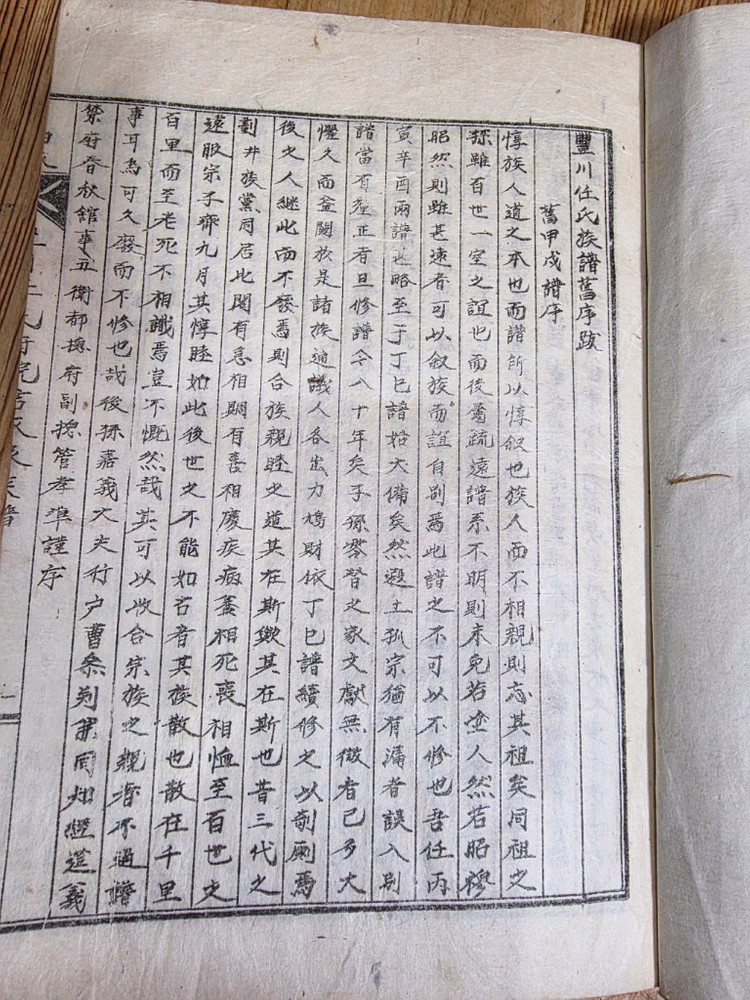 豐川任氏族譜舊序跋
舊甲戌譜序
惇族人道之本也而譜所以惇叙也族人而不相親則忘其祖矣同祖之
孫雖百世一室之誼也而後屬疏遠譜系不明則未免若塗人然若昭穆
昭然則雖甚遠者可以叙族而誼自別焉此譜之不可以不修也吾任丙
寅辛酉兩譜也略至于丁巳譜始大備矣然遐土孤宗猶有漏者誤入別
譜當有釐正者且修譜今八十年矣子孫零替之家文獻無徵者已多大
懼久而益闕於是諸族通議人各出力鳩財依丁巳譜續修之以剞劂焉
後之人継此而不廢焉則合族親睦之道其在斯歟其在斯也昔三代之
劃井族黨同居此閭有急相賙有喜相慶疾病葢相死喪相恤至百世之
遠服宗子齊九月其惇睦如此後世之不能如古昔其族散也散在千里
百里而至老死不相識焉豈不慨然哉其可以收合宗族之親者不過譜
事耳為可久廢而不修也哉後孫嘉義大夫行户曹叅判兼同知經筵義
禁府春秋館事五衛都摠府副摠管孝準謹序